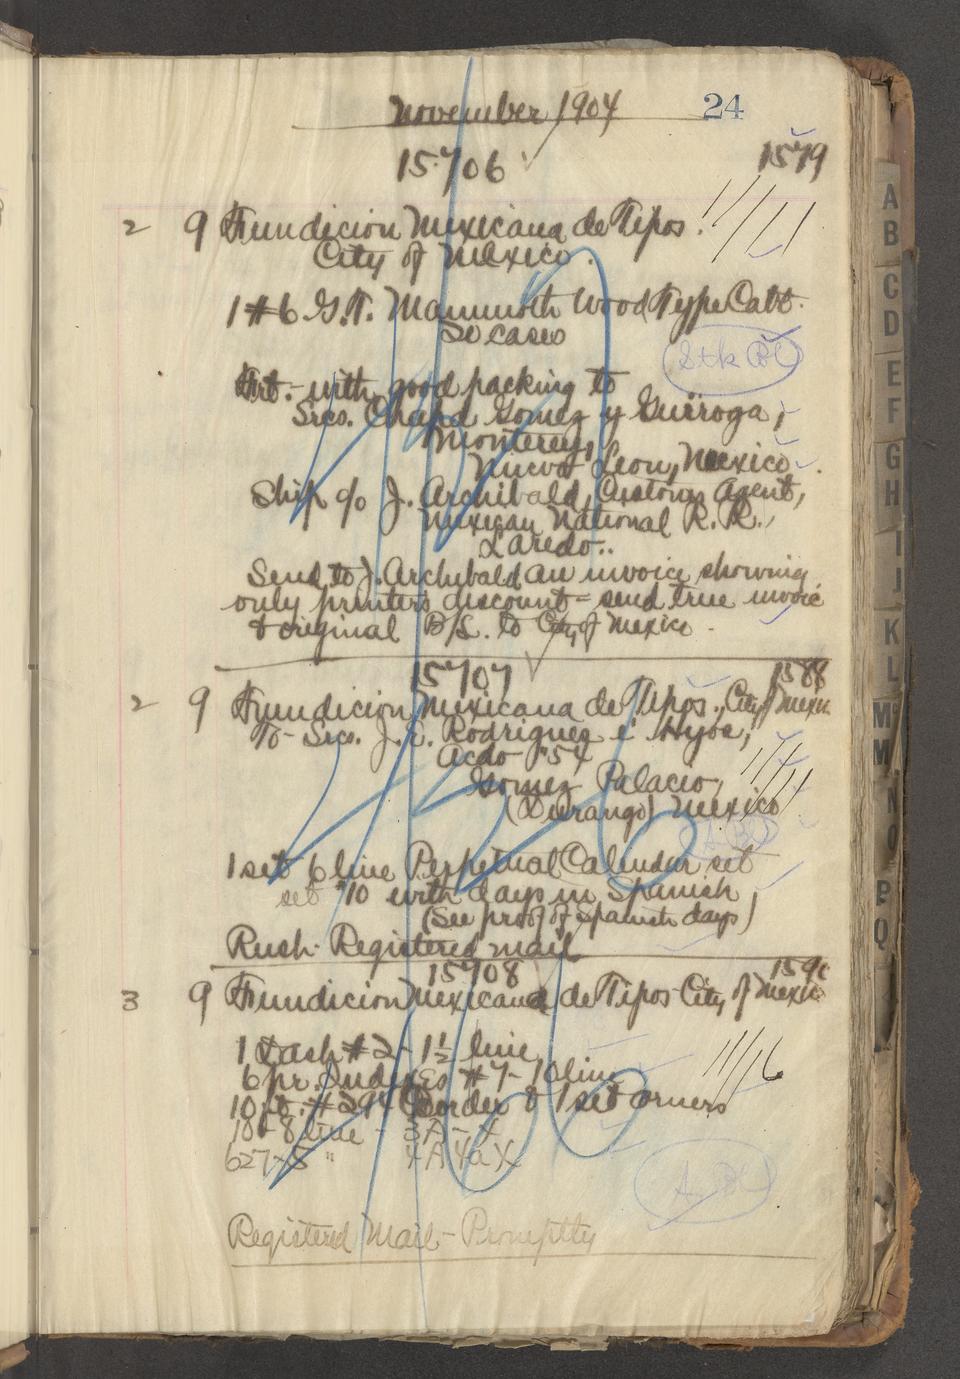 November 1904 24
15706 1579
2 9 Fundicion Mexicana de Tipos. 11/11
City of Mexico.
1 #6 G.T. Mammoth Wood Type Cabt.
20 cases
Stk
Frt. - with good packing to
Sres. Chapa Gomez y Guiroga,
Monterey,
Nuevo Leon, Mexico.
Ship c/o J. Archibald, Customs Agent,
Mexican National R.R.,
Laredo..
Send to J. Archibald an invoice showing
only printers discount = send true invoice
& original B/L. to City of Mexico.
15707 1588
2 9 Fundicion Mexicana de Tipos, City of Mexico
To - Sres. J. E. Rodriguez é Hijos,
Acdo #54
Gomez Palacio,
(Durango) Mexico
11/11
1 set 6 line Perpetual Calendar set
set #10 with days in Spanish
(See proof of Spanish days)
Rush - Registered mail
15708 159
3 9 Fundicion Mexicana de Tipos - City of Mexico
1 Dash #2 - 1½ line
11/16
6 pr. Indexes #7 - 10 line
10 ft. #294 Border & 1 set corners
10 - 8 line - 3A - X
627 - 5 " 4A 4a X
Registered Mail - Promptly
A
B
C
D
E
F
G
H
I
J
K
L
M
M
N
O
P
Q